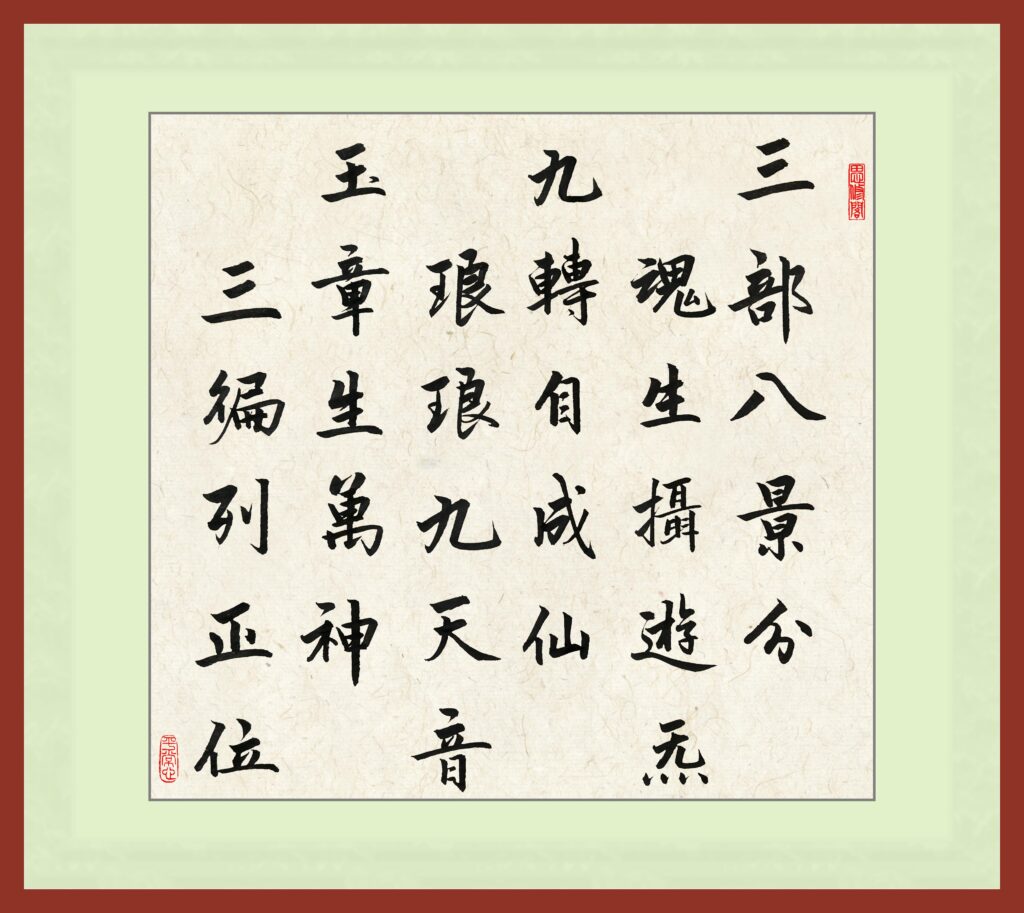 三部八景分
魂生攝遊炁
九轉自成仙
琅琅九天音
玉章生萬神
三徧列正位
思修閣
平常心